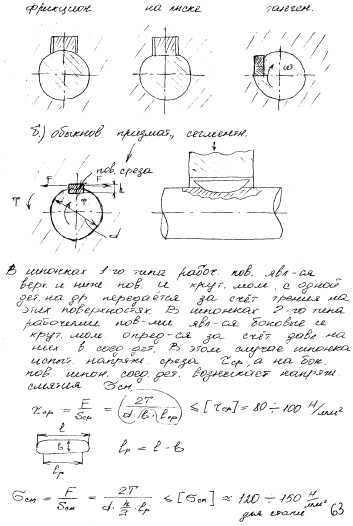 фрикцион. на лыске танген.
ω
б.) обыкнов. призмат., сегментн.
пов. среза
F F
T
d
В шпонках 1-го типа рабоч. пов. явл-ся
верх. и нижн пов. и крут. мом. с одной
дет. на др передаётся за счёт трения на
этих поверхностях. В шпонках 2-го типа
рабочими пов-ми явл-ся боковые и
крут. мом. опред-ся за счёт давл на
них в соед дет. В этом случае шпонка
испыт. напряж. среза τср, а на бок.
пов шпон. соед. дет. возникает напряж.
смятия σсм
τср = F/Sср = 2T/(d·b·lср) ≤ [τср] = 80 ÷ 100 Н/мм²
l
b
lр
lр = l - b
σсм = F/Sсм = 2T/(d·h/2·lр) ≤ [σсм] ≈ 120 ÷ 150 Н/мм²
для стали
63